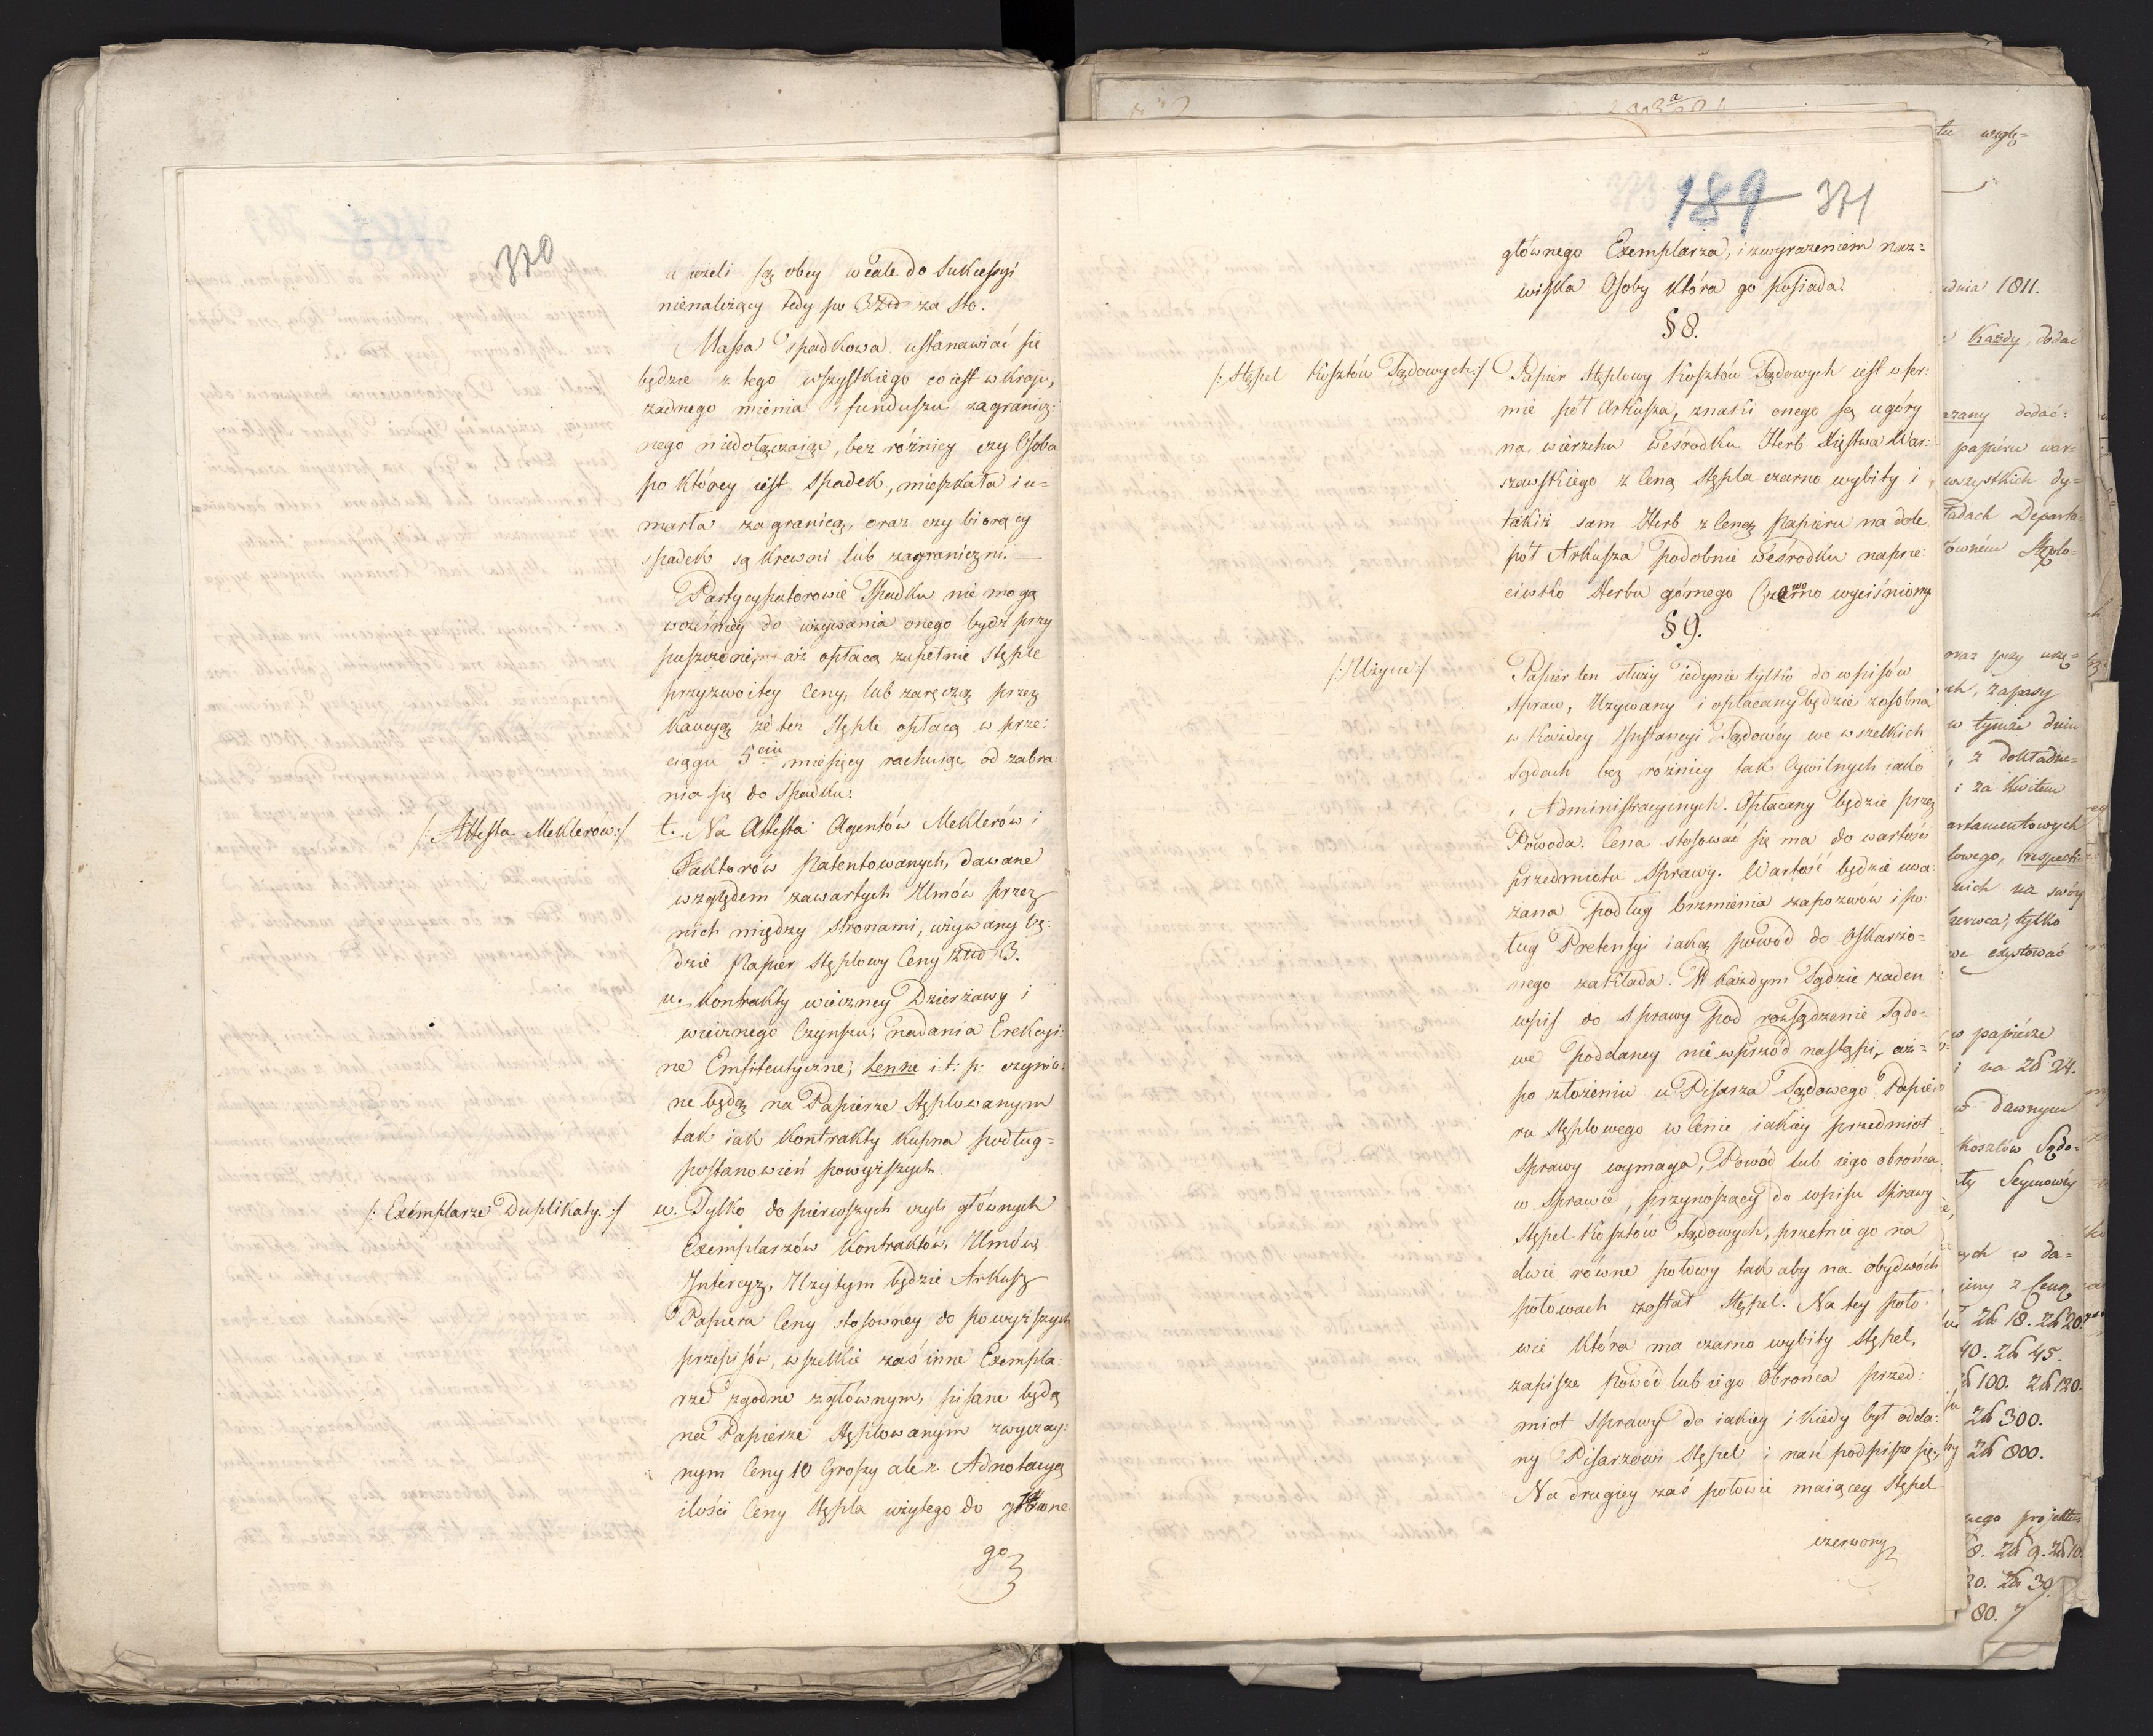 370
a ieżeli są obcy wcale do Sukcessyi
nienależący tedy po 3 Zło za Sto.
Massa Spadkowa ustanawiać się
będzie z tego wszystkiego co iest w Kraju,
żadnego mienia i funduszu zagranicz:
nego niedołączaiąc, bez różnicy czy Osoba
po którey iest Spadek, mieszkała i u=
marła zagranicą, oraz czy biorący
spadek są Krewni lub zagraniczni. —
Partycypatorowie Spadku nie mogą
wcześniey do używania onego bydź przy
puszczeni, aż opłacą zupełnie Stęple
przyzwoitey Ceny, lub zaręczą przez
Kaucyą że ten Stępel opłacą w prze:
ciągu 5ciu miesięcy rachuiąc od zabra:
nia się do Spadku.
/: Attesta Meklerów :/
t. Na Attesta Agentów Meklerów i
Faktorów Patentowanych, dawane
względem zawartych Umów przez
nich między stronami, używany bę:
dzie Papier Stęplowy Ceny Złło 3.
u. Kontrakty wieczney Dzierżawy i
wiecznego Czynszu, nadania Erekcyi:
ne Emfiteutyczne, Lenne i: t: p: czynio:
ne będą na Papierze Stęplowanym
tak iak Kontrakty Kupna podług=
postanowień powyższych.
/: Exemplarze Duplikaty. :/
w. Tylko do pierwszych czyli głównych
Exemplarzów Kontraktów, Umów,
Intercyz, Użytym będzie Arkusz
Papieru Ceny stosowney do powyższych
przepisów, wszelkie zaś inne Exempla:
rze zgodne z głównym, pisane będą
na Papierze Stęplowanym zwyczay:
nym Ceny 10 Groszy ale z Adnotacyą
ilości Ceny Stępla użytego do główne
go
189 371
głównego Exemplarza, i z wyrażeniem naz=
wiska Osoby która go posiada.
§ 8.
/: Stępel Kosztów Sądowych :/
Papier Stęplowy Kosztów Sądowych iest w for:
mie pół Arkusza, znaki onego są u góry
na wierzchu weśrodku Herb Xięstwa War:
szawskiego z Ceną Stępla czarno wybity i
takiż sam Herb z Ceną Papieru na dole
pół Arkusza podobnie weśrodku naprze:
ciwko Herbu górnego Czerwono wyciśniony
§ 9.
/: Użycie :/
Papier ten służy iedynie tylko do wpisów
Spraw, Używany i opłacany będzie zosobna
w każdey Instancyi Sądowey we wszelkich
Sądach bez różnicy tak Cywilnych iako
i Administracyinych. Opłacany będzie przez
Powoda. Cena stosować się ma do wartości
przedmiotu Sprawy. Wartość będzie uwa:
żana podług brzmienia zapozwów i po:
ług Pretensyi iaką powód do Oskarżo=
nego zakłada. W każdym Sądzie żaden
wpis do Sprawy pod rozsądzenie Sądo=
we poddaney nie wprzód nastąpi, aż=
po złożeniu u Pisarza Sądowego Papie:
ru Stęplowego w Cenie iakiey przedmiot
Sprawy wymaga, Powód lub iego obrońca
w Sprawie, przynoszący do wpisu Sprawy
Stępel Kosztów Sądowych, przetnie go na
dwie równe połowy tak aby na obydwóch
połowach został Stępel. Na tey poło:
wie która ma czarno wybity Stępel,
zapisze Powód lub iego Obrońca przed:
miot Sprawy do iakiey i kiedy był odda:
ny Pisarzowi Stępel i nań podpisze się,
Na drugiey zaś połowie maiącey Stępel
czerwony
tu wzglę=
udnia 1811.
Każdy dodać
dodać=
papieru war=
wszystkich dy=
Departa=
Stęplo=
oraz przy
zapasy
w tymże dniu
z dokładne=
i za Kwitem
artamentowych
respecti
nich na swóy
czerwca, tylko
exystować
w papierze
i na Zł 24.
w dawnym
kosztów Sądo=
Seymowéy
w da=
z Ceną
Zł 18. Zł 20.
40. Zł 45.
Zł 100. Zł 120.
Zł 300.
Zł 800.
projektu
8. Zł 9. Zł 10.
20. Zł 30.
80.